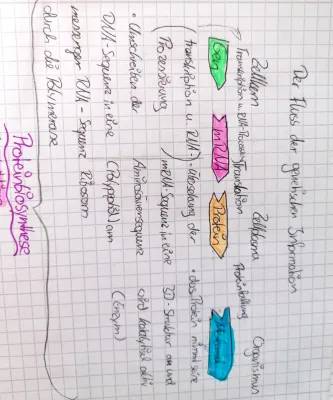 Der Fluss der genetischen Information
Zellkern
Zellplasma
Organismus
Transkription u. RNA-Prozessierung
Translation
Proteinfaltung
Gen
mRNA
Protein
(Transkription u. RNA-
Prozessierung)
• Umschreiben der
DNA-Sequenz in eine
messenger RNA-Sequenz
durch die Polymerase
• Übersetzung der
mRNA-Sequenz in eine
Aminosäuresequenz
(Polypeptid) am
Ribosom
• das Protein nimmt seine
3D-Struktur an und
wird katalytisch aktiv
(Enzym)
Proteinbiosynthese